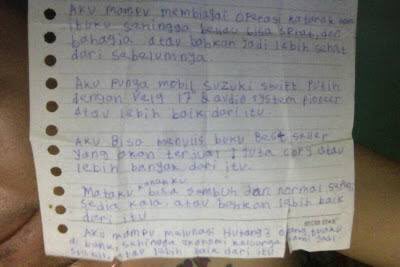 Aku mampu membiayai operasi katarak
ibuku sehingga beliau bisa sehat, dan
bahagia atau bahkan jadi lebih sehat
dari sebelumnya.
Aku punya mobil suzuki swift putih
dengan velg 17 & audio system pioneer
atau lebih baik dari itu.
Aku Bisa menulis buku Best seller
yang akan terjual 1 juta copy atau
lebih banyak dari itu.
kananku
Mataku bisa sembuh dan normal seperti
sedia kala atau bahkan lebih baik
dari itu
Aku mampu melunasi Hutang2 orang tuaku
di bank, sehingga ekonomi keluarga kami jadi
atau lebih baik dari itu.